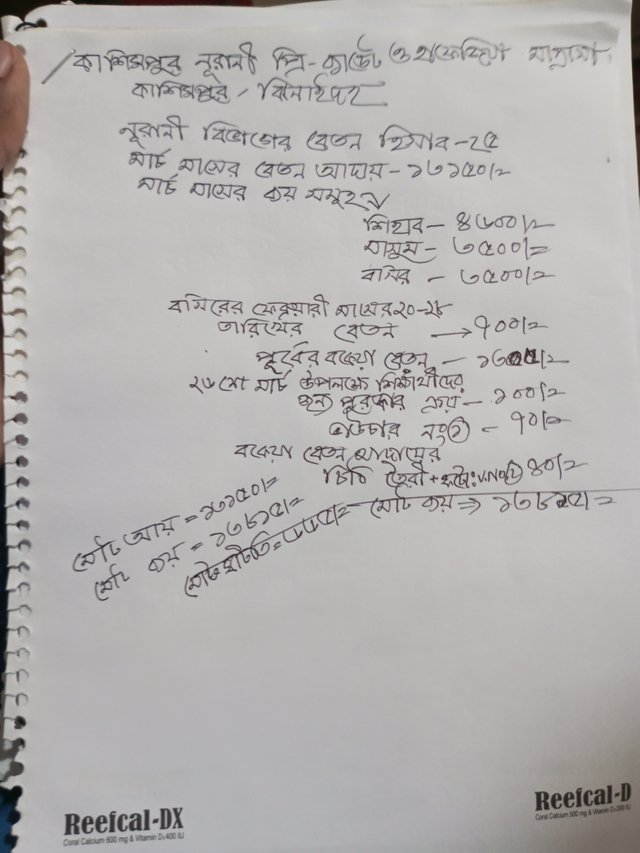 কাশিমপুর নূরানী প্রি-ক্যাডেট ও হাফেজিয়া মাদ্রাসা
কাশিমপুর, ঝিনাইদহ
নূরানী বিভাগের বেতন হিসাব-২৫
মার্চ মাসের বেতন আদায়-১৩১৫০/=
মার্চ মাসের ব্যয় সমূহঃ
শিহাব - ৪৬০০/=
মাসুম - ৩৫০০/=
বাসির - ৩৫০০/=
বাসিরের ফেব্রুয়ারী মাসের ২০-২৮
তারিখের বেতন → ৭০০/=
পূর্বের বকেয়া বেতন -
২৬ শে মার্চ উপলক্ষে শিক্ষার্থীদের
জন্য পুরস্কার ক্রয় - ১০০/=
ভাউচার নং - ৭০/=
বকেয়া বেতন আদায়ের
চিঠি তৈরী + ৪০/=
মোট ব্যয় ⇒
মোট আয় = ১৩১৫০/=
মোট ব্যয় = ১৩৮১৫/=
মোট ঘাটতি = ৬৬৫/=
Reefcal-DX
Coral Calcium 600 mg & Vitamin D3 400 IU
Reefcal-D
Coral Calcium 500 mg & Vitamin D3 200 IU